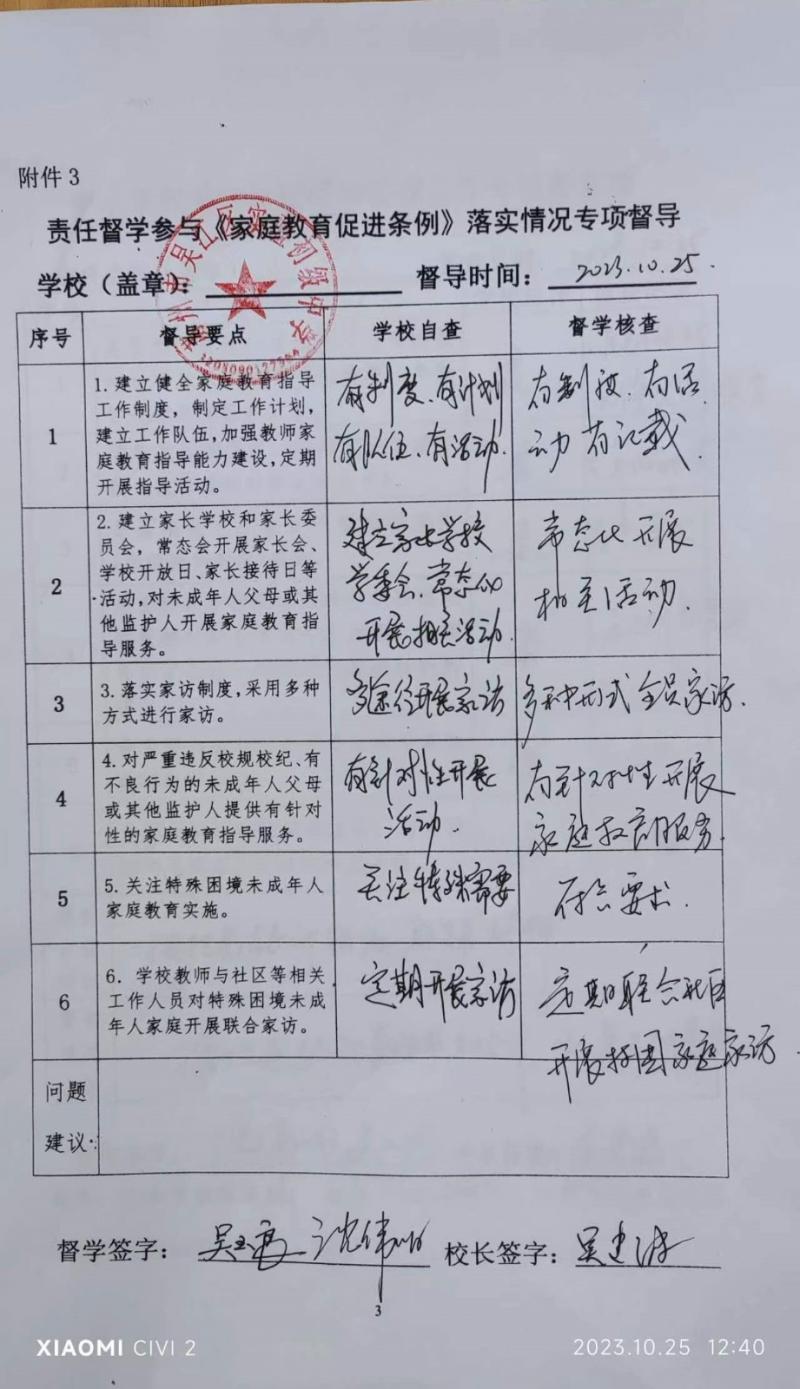 附件 3
责任督学参与《家庭教育促进条例》落实情况专项督导
学校（盖章）： 督导时间： 2023.10.25.
吴江区实验初级中学
序号 督导要点 学校自查 督学核查
1
1.建立健全家庭教育指导
工作制度，制定工作计划，
建立工作队伍,加强教师家
庭教育指导能力建设,定期
开展指导活动。
有制度、有计划
有队伍、有活动.
有制度.有活
动 有记载.
2
2.建立家长学校和家长委
员会，常态会开展家长会、
学校开放日、家长接待日等
活动,对未成年人父母或其
他监护人开展家庭教育指
导服务。
建立家长学校
学委会、常态化
开展相关活动.
常态化开展
相关活动.
3
3.落实家访制度,采用多种
方式进行家访。
多途径开展家访
多种形式全员家访.
4
4.对严重违反校规校纪、有
不良行为的未成年人父母
或其他监护人提供有针对
性的家庭教育指导服务。
有针对性开展
活动.
有针对性开展
家庭教育服务.
5
5.关注特殊困境未成年人
家庭教育实施。
关注特殊需要
符合要求.
6
6.学校教师与社区等相关
工作人员对特殊困境未成
年人家庭开展联合家访。
定期开展家访
定期联合社区
开展特困家庭家访
问题
建议:
督学签字： 校长签字： 吴建
3
XIAOMI CIVI 2 2023.10.25 12:40